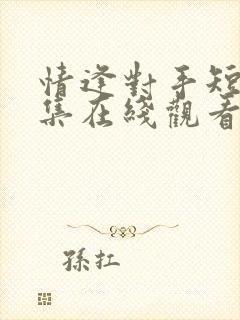 情逢對手短
集在綫觀看
孫扛